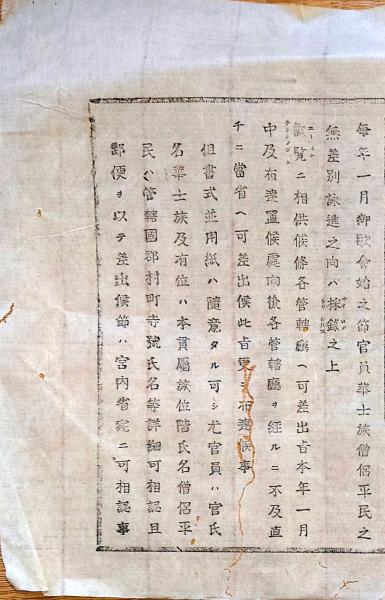 毎年一月御歌會始之節官員華士族僧侶平民之
無差別詠進之向ハ採録之上
叡覧ニ相供候條各管轄廳ヘ可差出旨本年一月
中及布達置候處向後各管轄廳ヲ經ルニ不及直
チニ當省ヘ可差出候此旨更ニ布達候事
但書式並用紙ハ随意タル可シ尤官員ハ官氏
名華士族及有位ハ本貫屬族位階氏名僧侶平
民ハ管轄國郡村町寺號氏名等詳細可相認且
郵便ヲ以テ差出候節ハ宮内省宛ニ可相認事